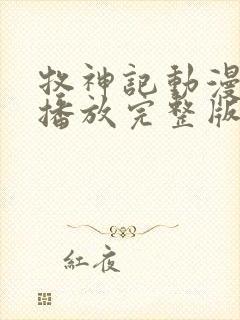 牧神記動漫
播放完整版
紅夜